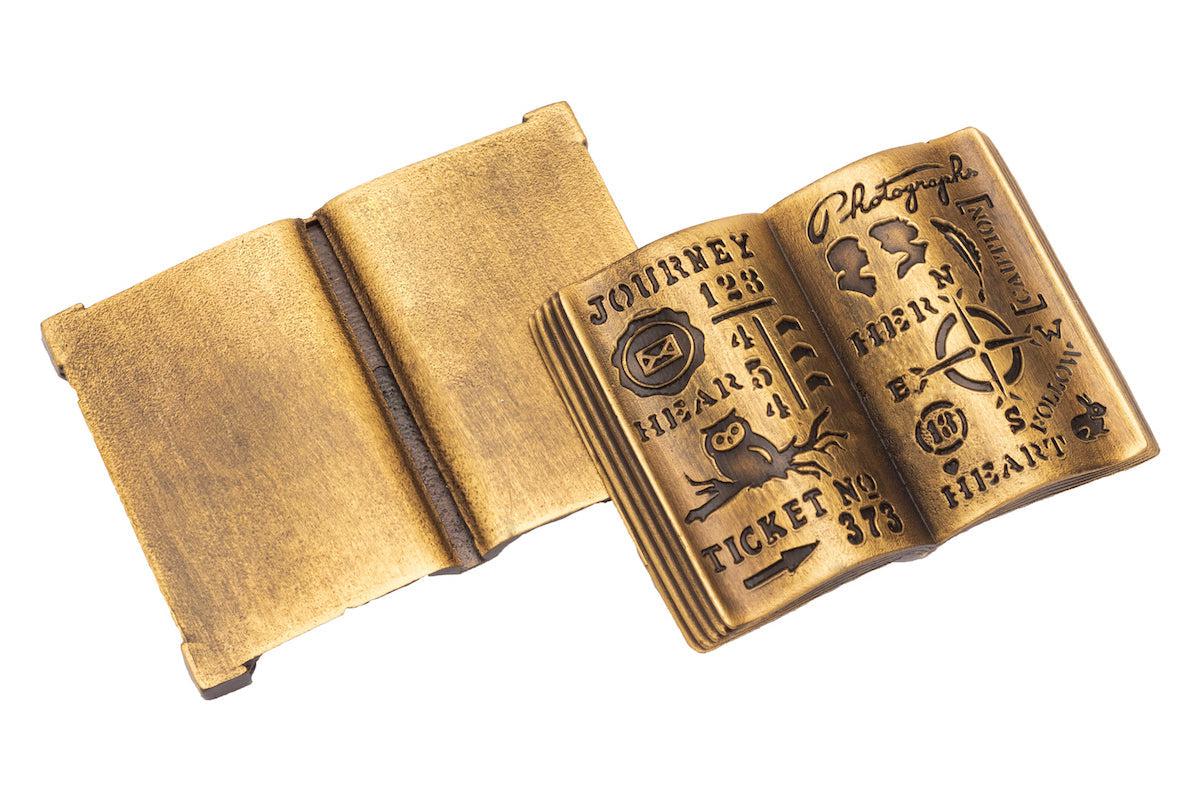 JOURNEY
123
4
HEAR 5
4
TICKET No
373
Photographs
[CAUTION]
HER
N
W
E
S
MOTION
13
HEART